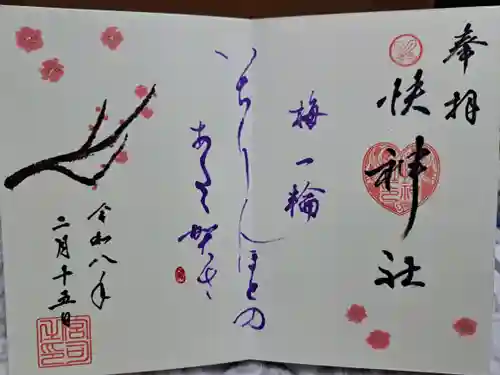 奉拝
快神社
梅一輪
いちりんほとの
あたゝかさ
令和八年
二月十五日
宮司之印